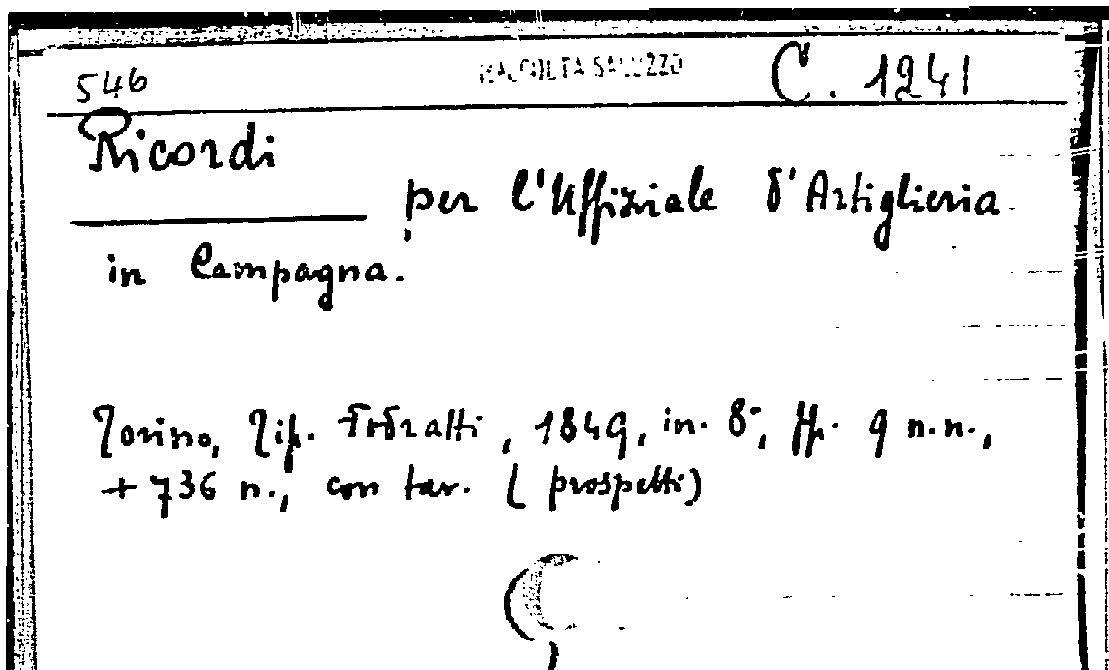 546 RACCOLTA SALUZZO C. 1241
Ricordi
per l'Uffiziale d'Artiglieria
in Campagna.
Torino, Tip. Fodratti, 1849, in. 8°, ff. 9 n.n.,
+ 736 n., con tav. (prospetti)